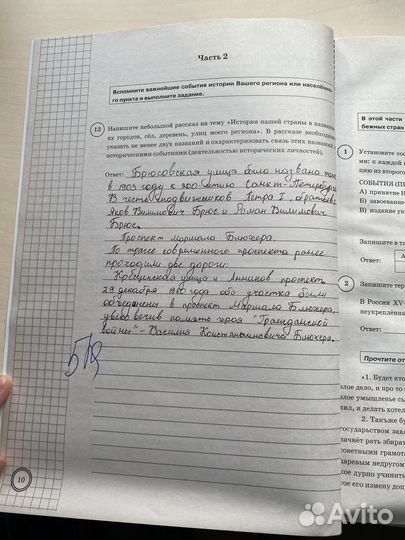 Часть 2
Вспомните важнейшие события истории Вашего региона или населённо-
го пункта и выполните задание.
12
Напишите небольшой рассказ на тему «История нашей страны в названи-
ях городов, сёл, деревень, улиц моего региона». В рассказе необходимо
указать не менее двух названий и охарактеризовать связь этих названий
историческими событиями (деятельностью исторических личностей).
Ответ: Брюсовская улица была названа так
в 1903 году к 200-летию Санкт-Петербурга
В честь сподвижников Петра I, братьев:
Яков Вилимович Брюс и Роман Вилимович
Брюс.
Проспект Маршала Блюхера.
По трассе современного проспекта ранее
проходили две дороги:
Кресцинская улица и Анников проспект
29 декабря 1980 года оба участка были
объеденены в проспект Маршала Блюхера,
увековечив память героя "Гражданской
войны" - Василия Константиновича Блюхера.
10
В этой части
бежных стран
1
Установите со
ми: к каждой п
цию из второго
СОБЫТИЯ (П
А) принятие И
Б) завоевание
В) издание ук
Запишите в та
Ответ:
А
2
Запишите тер
В России XV-
неукреплённа
Ответ:
Прочтите от
«1. Будет кто
лое дело, и про то
лое умышленье сь
и, и делать хотел
2. Такъже бу
государством завла
начнёт рать збират
советными грамота
даревым недругом
кое дурно учинить
кое его измену дошл
Avito